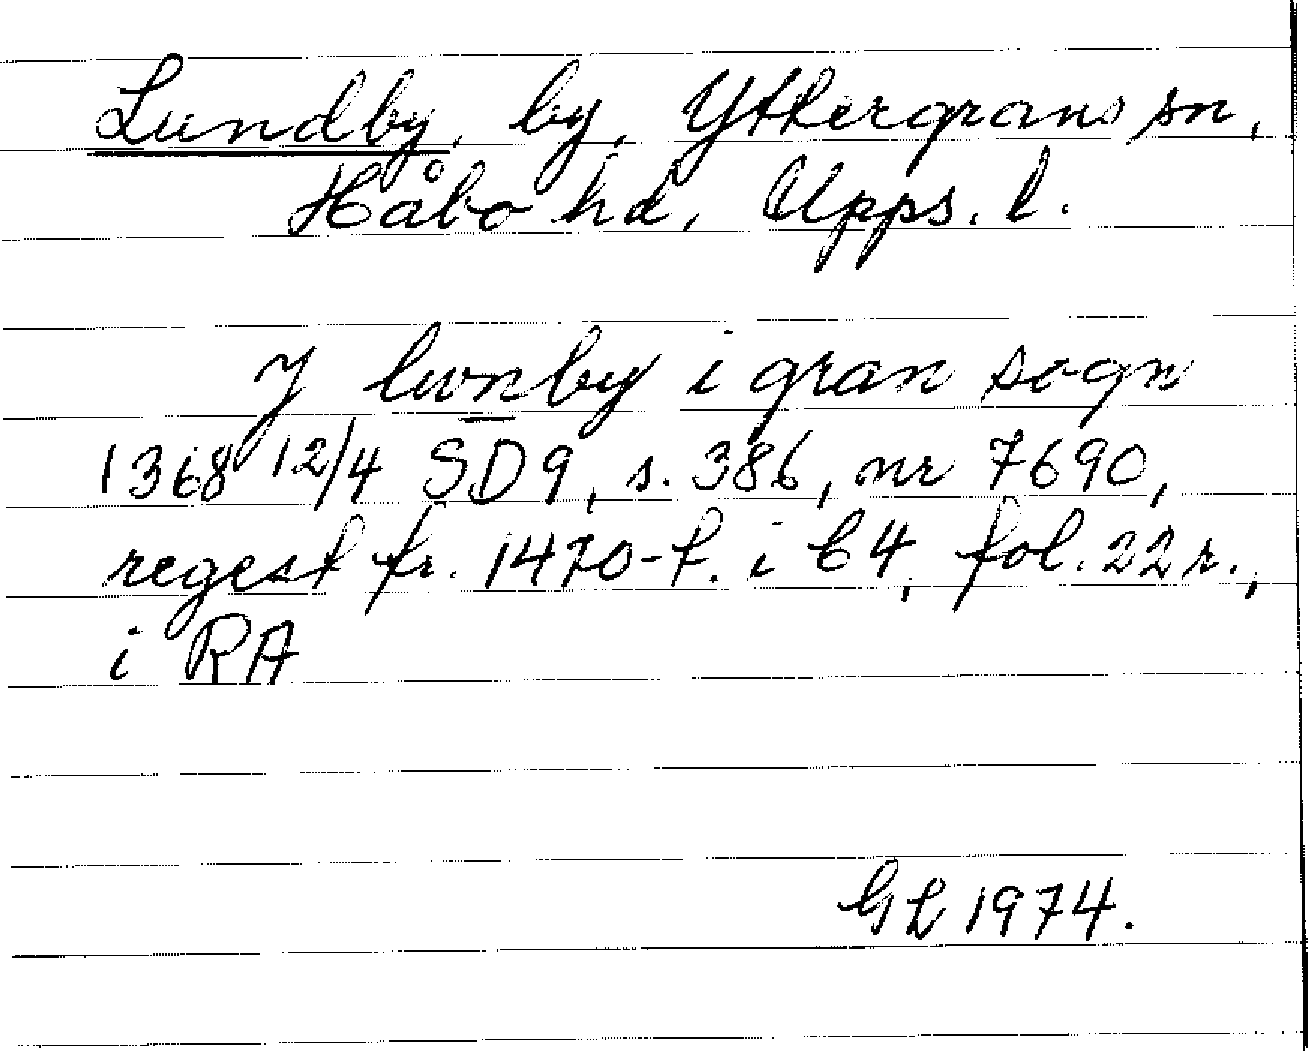 Lundby, by, Yttergrans sn,
Håbo hd, Upps. l.
J lwnby i gran sogn
1368 12/4 SD9, s. 386, nr 7690,
regest fr. 1470-t. i C4, fol. 22r.,
i RA
GL 1974.